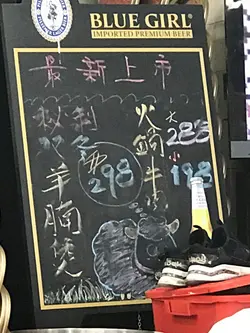 BLUE GIRL
IMPORTED PREMIUM BEER
最新上市
秘制
羊腩煲
298
火鍋牛肉
大
288
小
198